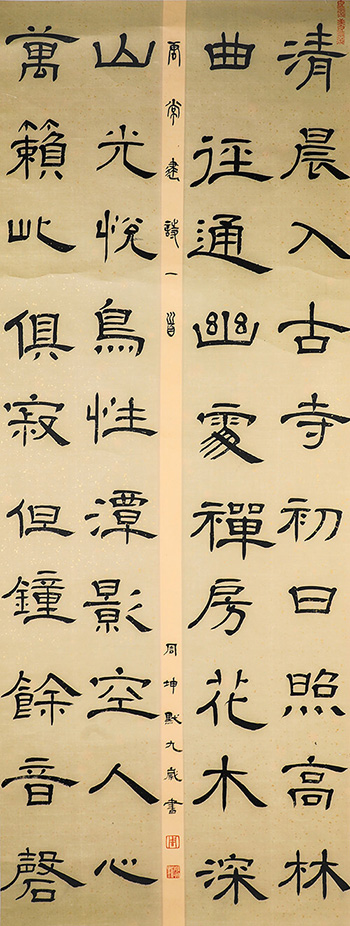 清晨入古寺初日照高林
曲径通幽處禪房花木深
唐常建詩一首
山光悅鳥性潭影空人心
萬籟此俱寂但鐘餘音磬
周坤默九歲書